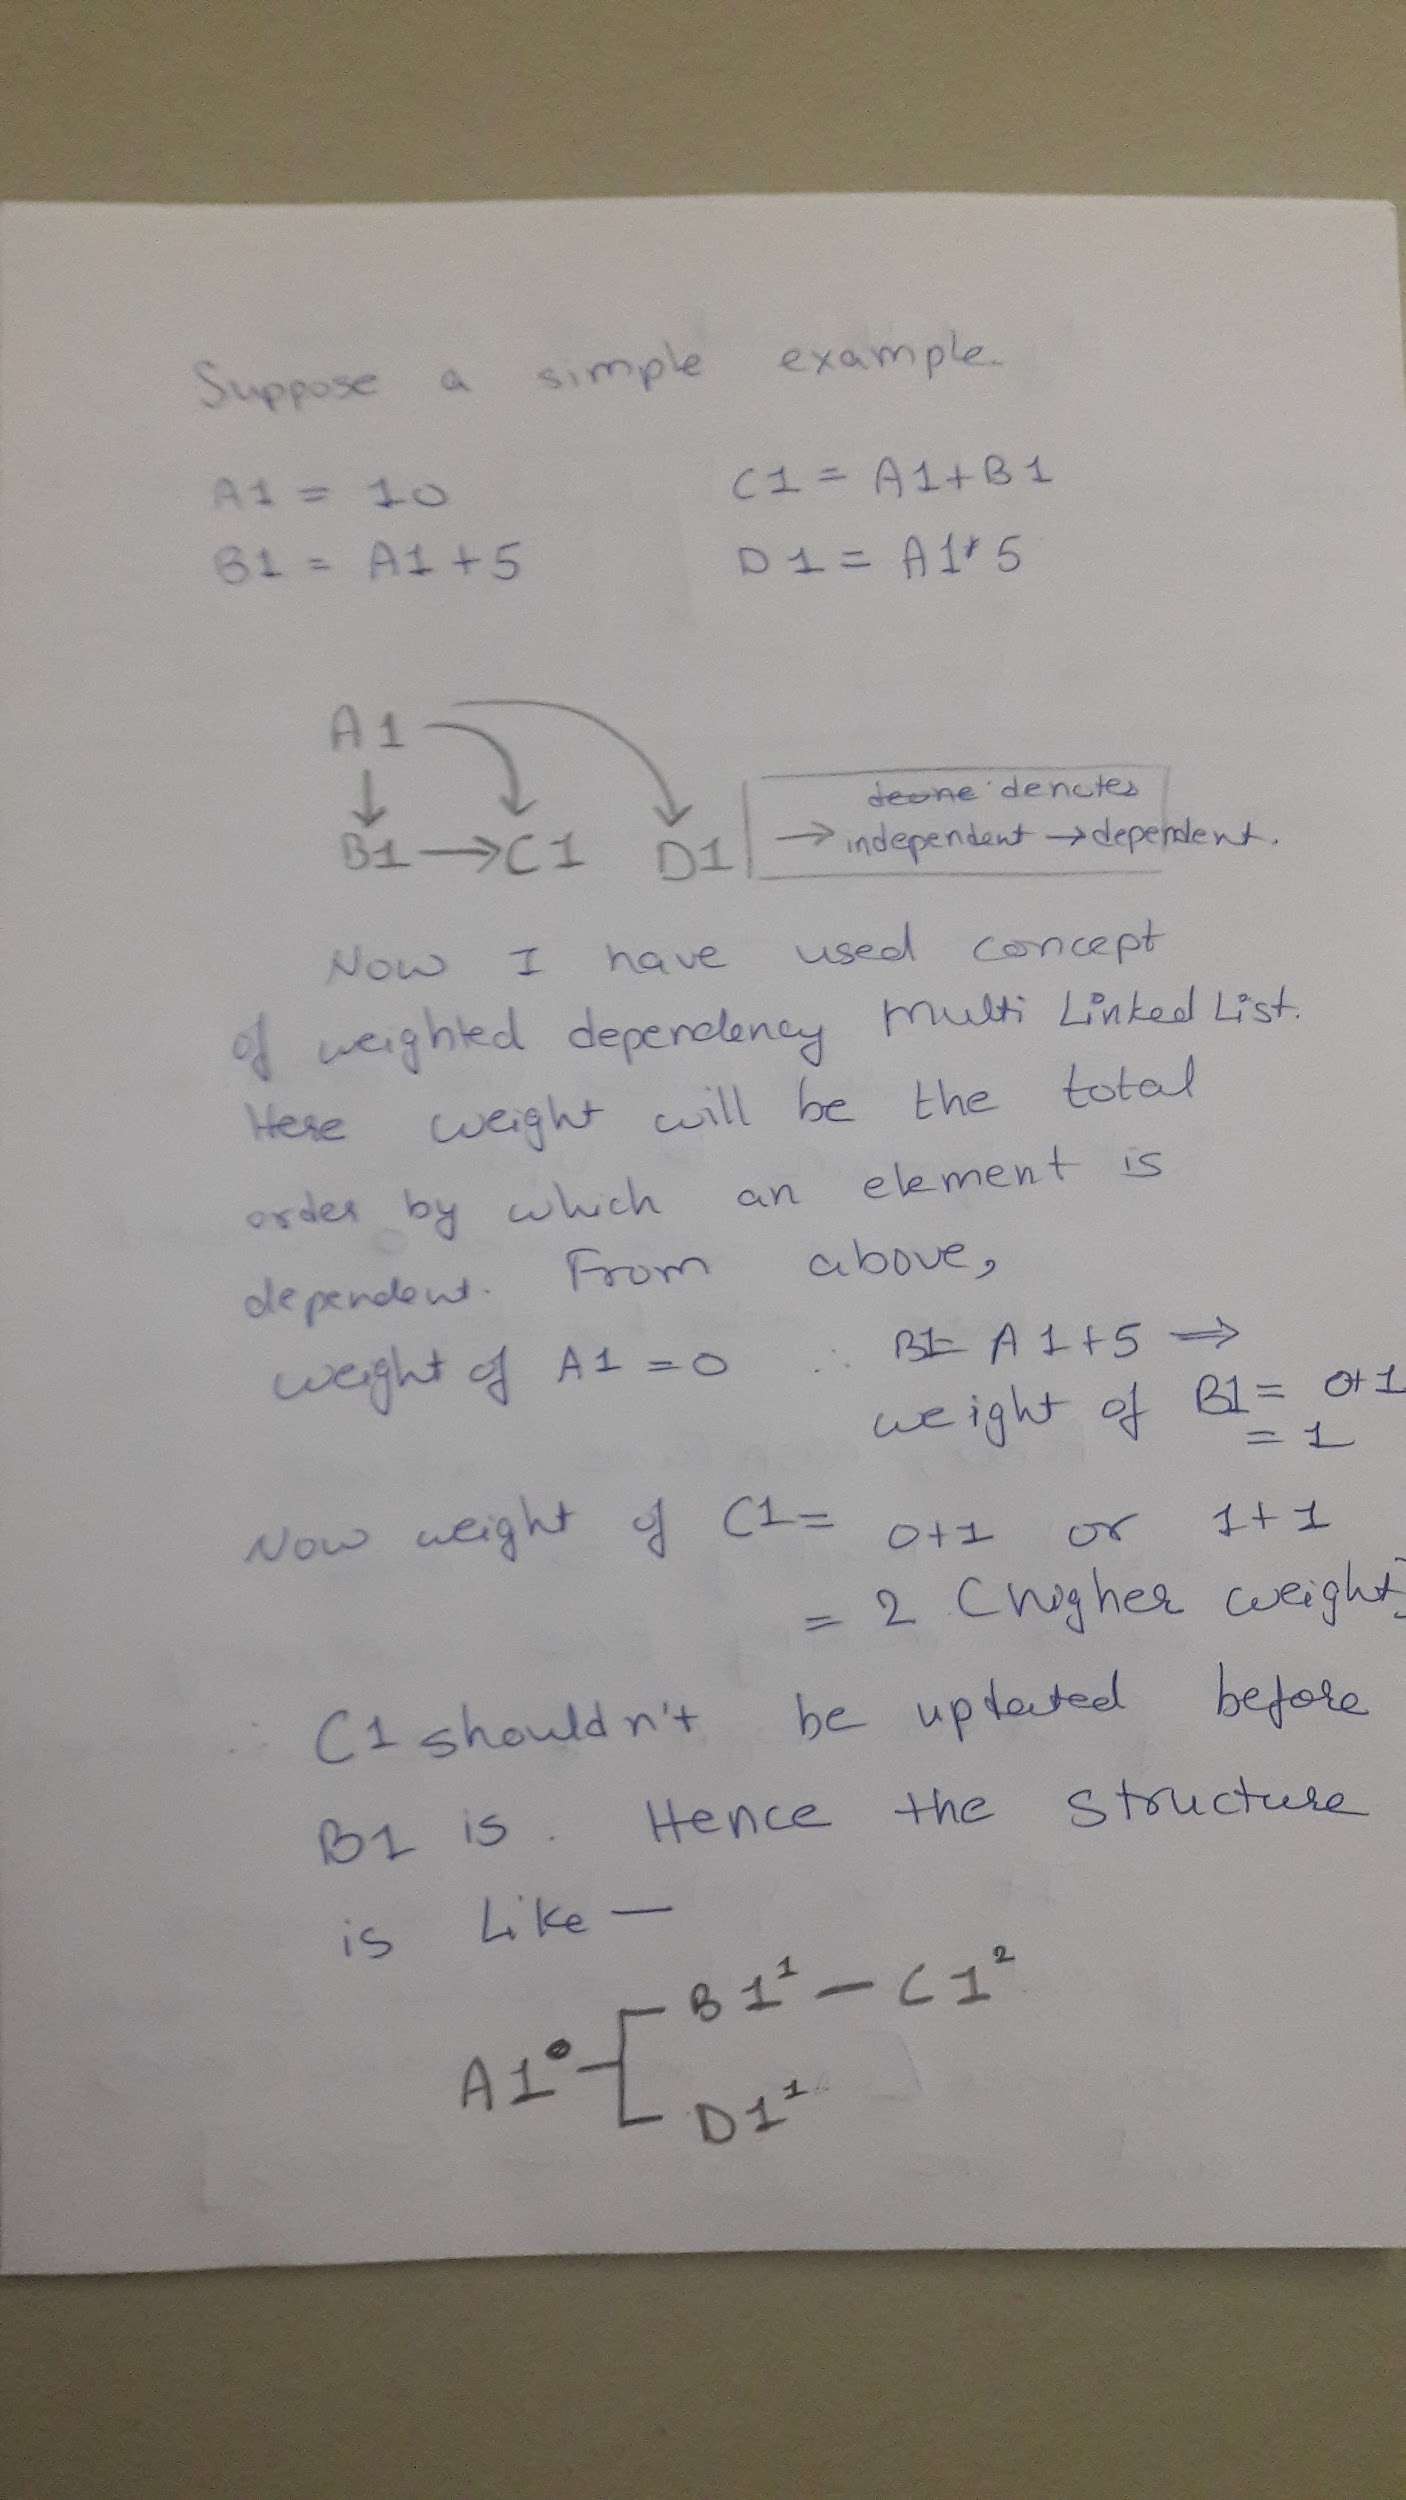 Suppose a simple example.
A1 = 10 C1 = A1+B1
B1 = A1+5 D1 = A1*5
A1
B1 → C1 D1
denotes
→ independent → dependent.
Now I have used concept
of weighted dependency Multi Linked List.
Here weight will be the total
order by which an element is
dependent. From above,
weight of A1 = 0 ∴ B1= A1+5 ⇒
weight of B1 = 0+1
= 1
Now weight of C1 = 0+1 or 1+1
= 2 (higher weight)
∴ C1 shouldn't be updated before
B1 is. Hence the structure
is like —
B1¹ — C1²
A1⁰
D1¹